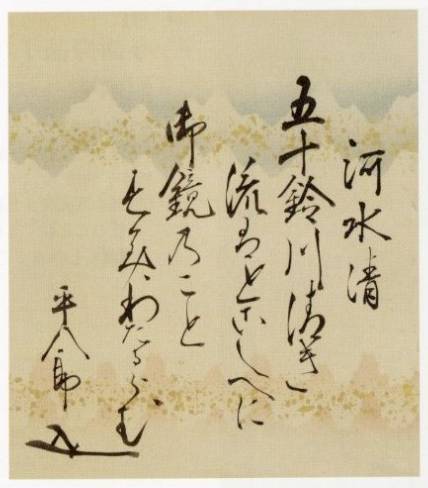 河水清
五十鈴川清き
流はとこしへに
御鏡乃こと
すみわたるらむ
平八郎